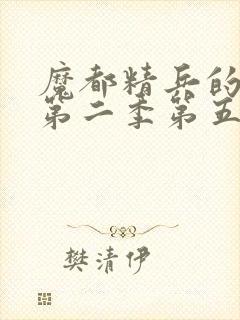 魔都精兵的
第二季第五
樊清伊